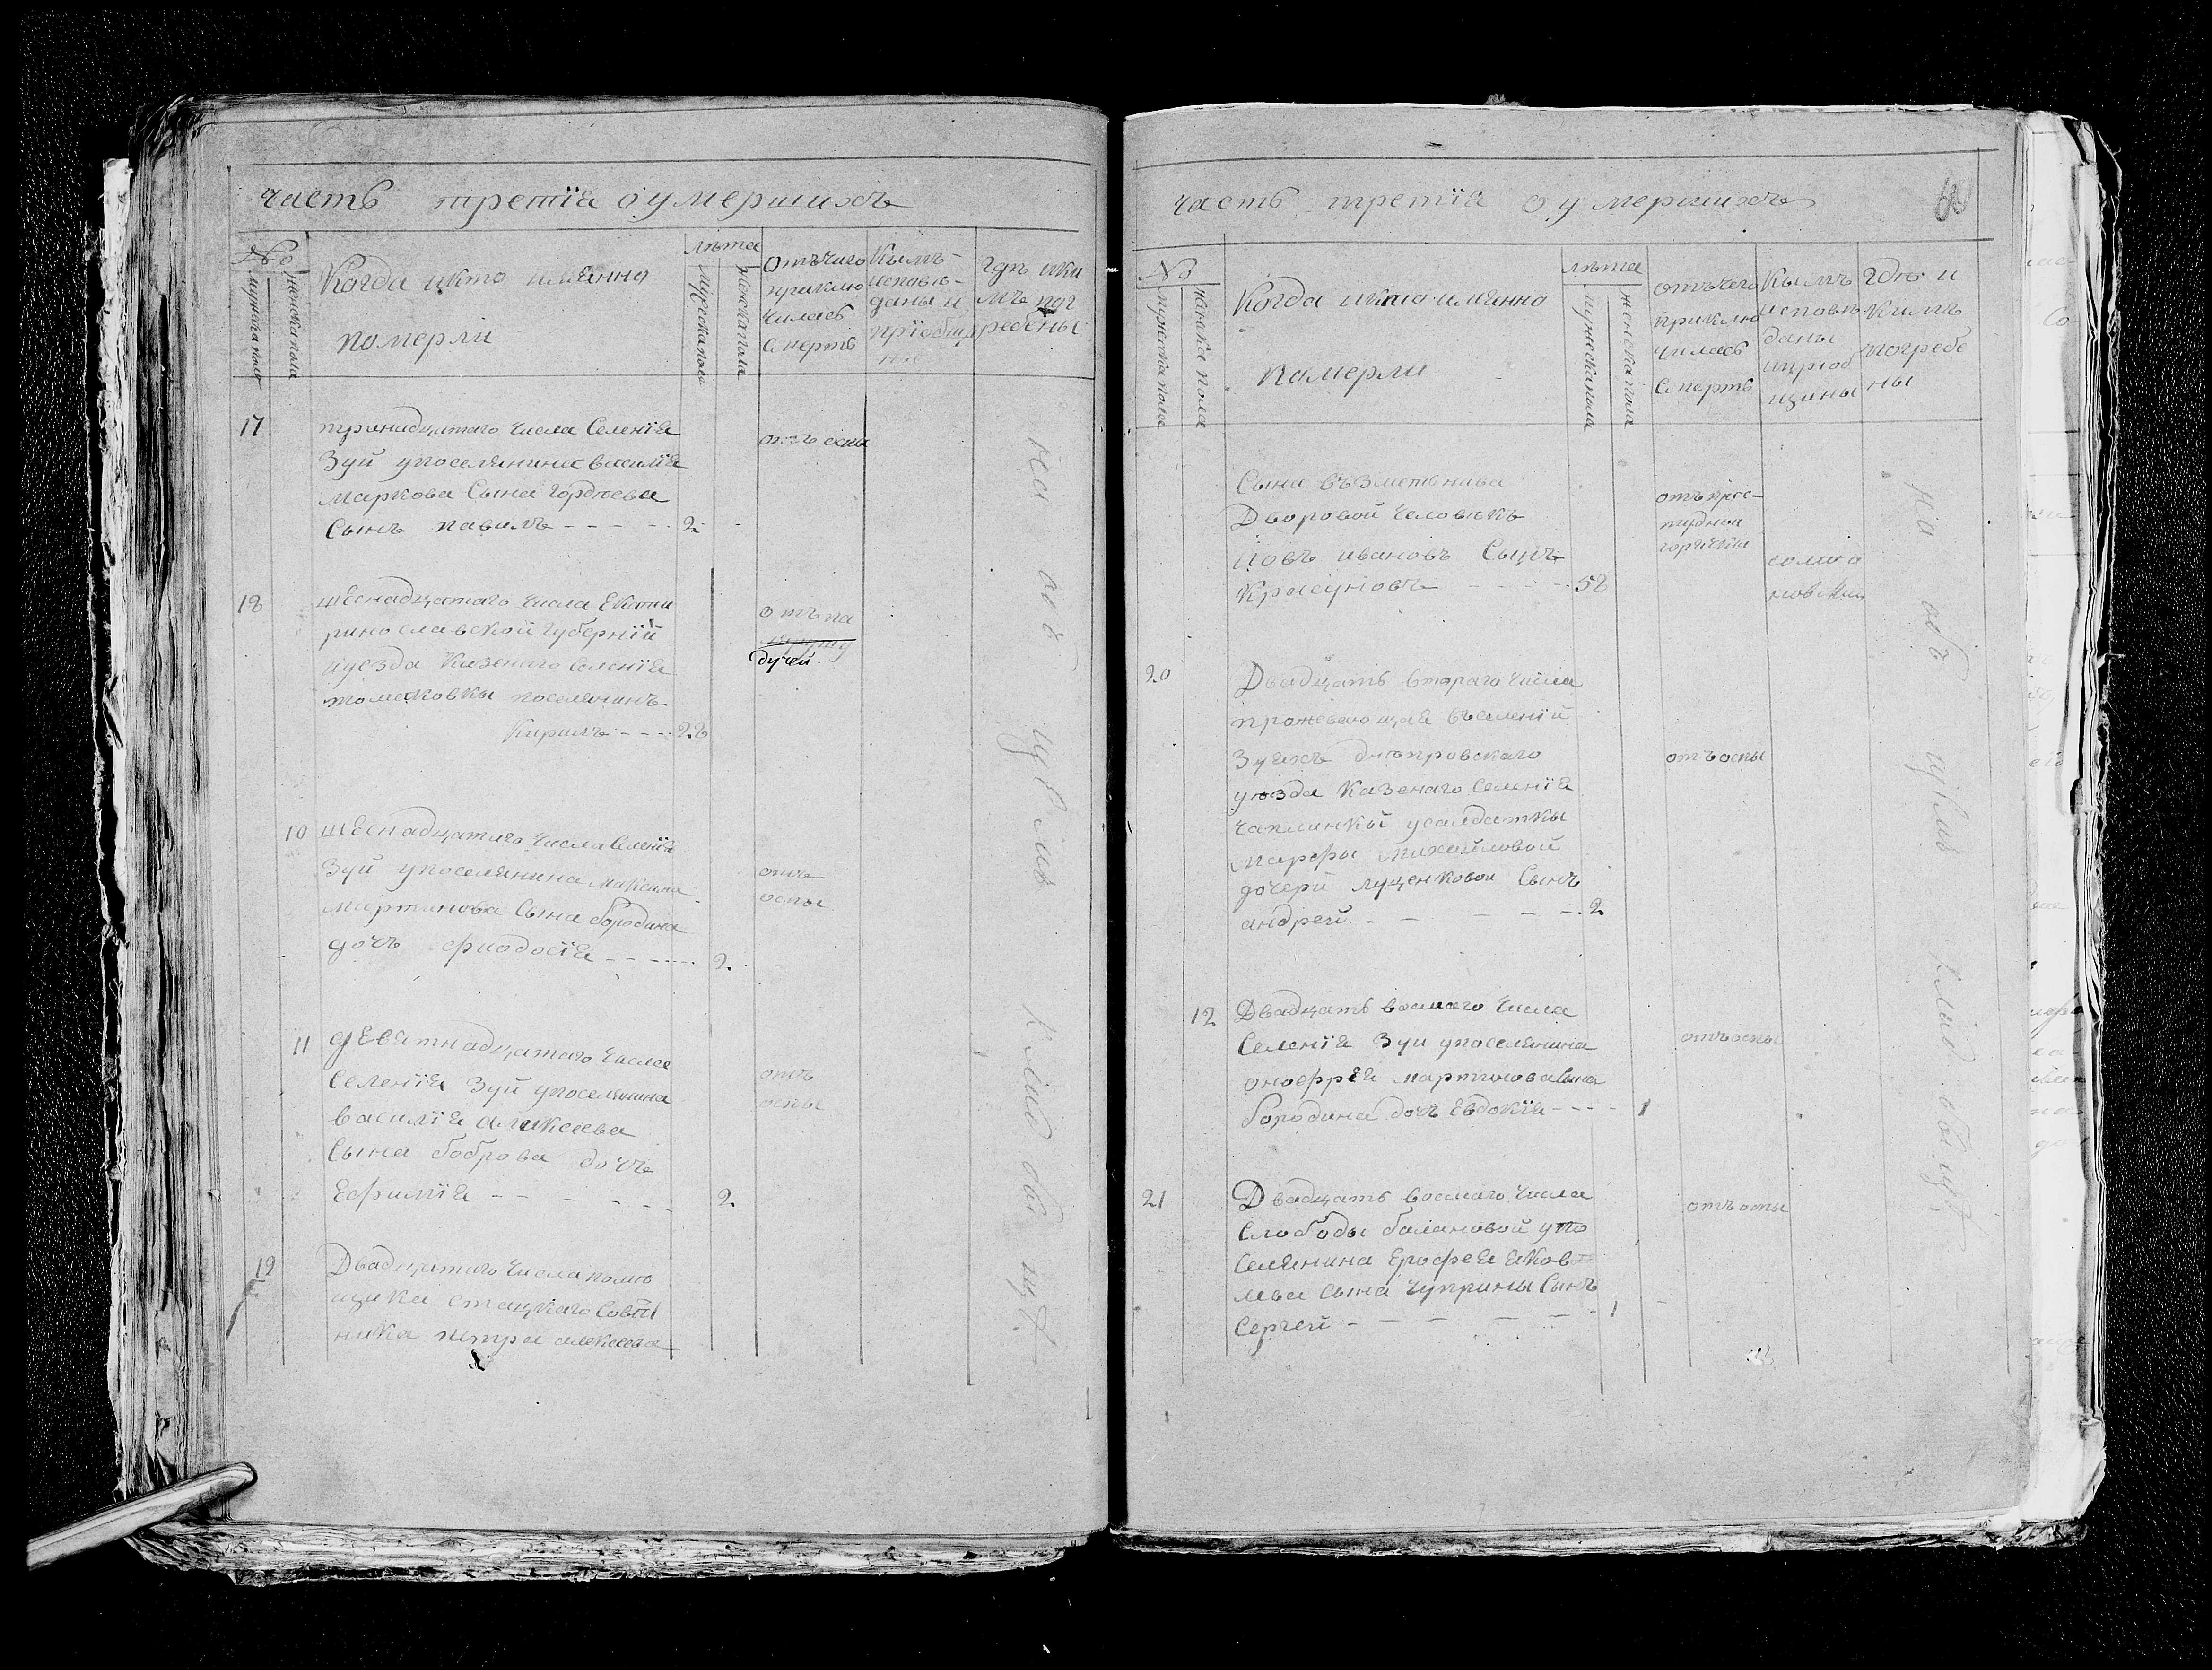 часть третїя оумершихъ
№
мужеска пола
женска пола
Когда икто имянно
померли
лѣта
мужеска пола
женска пола
Отъчего
приклю
чилась
Смерть
Кѣмъ
исповѣ-
даны и
прїобщ
гдѣ ики
мъ пог
ребены
17
тринадцатаго числа Селенїя
Зуй упоселянина василїя
маркова Сына гордѣева
Сынъ павилъ - - - - - 2
отъ оспы
18
шеснадцатаго числа Екати
ринославской губернїи
иуезда Казенаго Селенїя
томаковкы поселянинъ
Кирилъ - - - - 28
отъ па
дучей
10
шЕснадцатаго числа Селенїя
Зуй упоселянина максима
мартинова Сына бородина
дочъ фиодосїя - - - - - 2.
отъ
оспы
11
дЕвятнадцатаго числа
Селенїя Зуй упоселянина
василїя алижеева
Сына боброва дочъ
Ефимїя - - - - - 2.
отъ
оспы
19
Двадцатаго числа помѣ
щика стацкаго Совѣт
ника петра алексеева
на об
щемъ
клад би щѣ.
часть третїя оумершихъ
№
мужеска пола
женска пола
Когда икто имянно
памерли
лѣта
мужеска пола
женска пола
отъчего
приклю
чилась
Смерть
Кымъ
исповѣ
даны
ипріоб
щены
Гдѣ и
Кимъ
погребе
ны
Сына възметнива
Дворовой человѣкъ
іовъ ивановъ Сынъ
Красуновъ - - - - - 58
отъ прос-
тудной
горячкы
20
Двадцать втораго числа
прожевающая въселенїи
Зуяхъ днѣпровскаго
уѣзда Казенаго Селенїя
чаплинкы усалдаткы
марфы михайловой
дочери луценковой Сынъ
андрей - - - - - - 2
отъоспы
12
Двадцать восмаго числа
Селенїя Зуи упоселянина
онофрея мартиноваСына
бородина дочъ Евдокїя - - - - 1
отъоспы
21
Двадцать восмаго числа
Слободы балановой упо
Селянина Ерофея Яков=
лева Сына чуприны Сынъ
Сергей - - - - - - 1
отъоспы
на объ
щемъ
клад би щѣ.